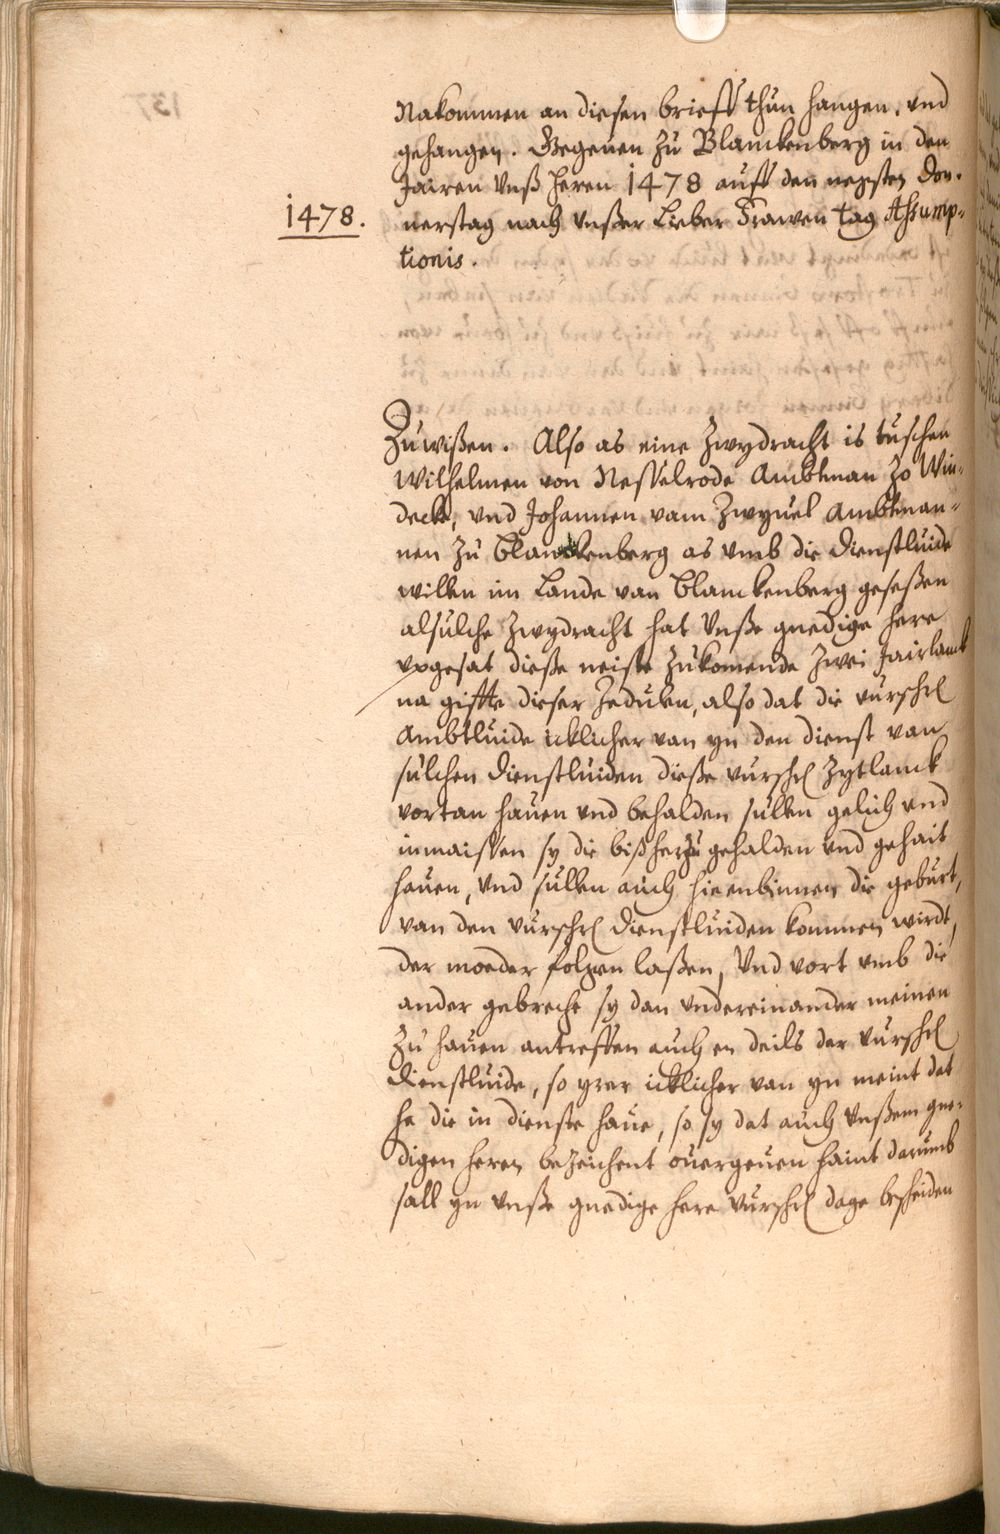 Nakommen an diesen brieff thun hangen, vnd
gehangen. Gegeuen zu Blanckenberg in den
Jairen Vnß heren 1478 auff den negsten Don-
1478.
nerstag nach Vnßer Lieber Frawen tag Assump-
tionis.
Zuwißen. Also as eine Zwydracht is tuschen
Wilhelmen von Nesselrode Ambtman zo Win-
decke, vnd Johannen vam Zwyuel Ambtman-
nen zu Blanckenberg as vmb die dienstluide
willen im Lande van Blanckenberg geseßen
alsulche Zwydracht hat Vnße gnedige here
vpgesat dieße neiste zukomende zwei Jairlanck
na giffte dieser Zedulen, also dat die vurschr
Ambtluide icklicher van yn den dienst van
sulchen dienstluiden dieße vurschr zytlanck
vortan hauen vnd behalden sullen gelich vnd
inmaissen sy die bißherzu gehalden vnd gehait
hauen, vnd sullen auch hieenbinnen die geburt,
van den vurschr dienstluiden kommen wirdt,
der moeder folgen laßen, Vnd vort vmb die
ander gebreche sy dan vndereinander meinen
zu hauen antreffen auch en deils der vurschr
dienstluide, so yrer icklicher van yn meint dat
he die in dienste haue, so sy dat auch Vnßem gne-
digen heren bezeichent ouergeuen haint darumb
sall yn vnße gnedige here vurschr dage bescheiden